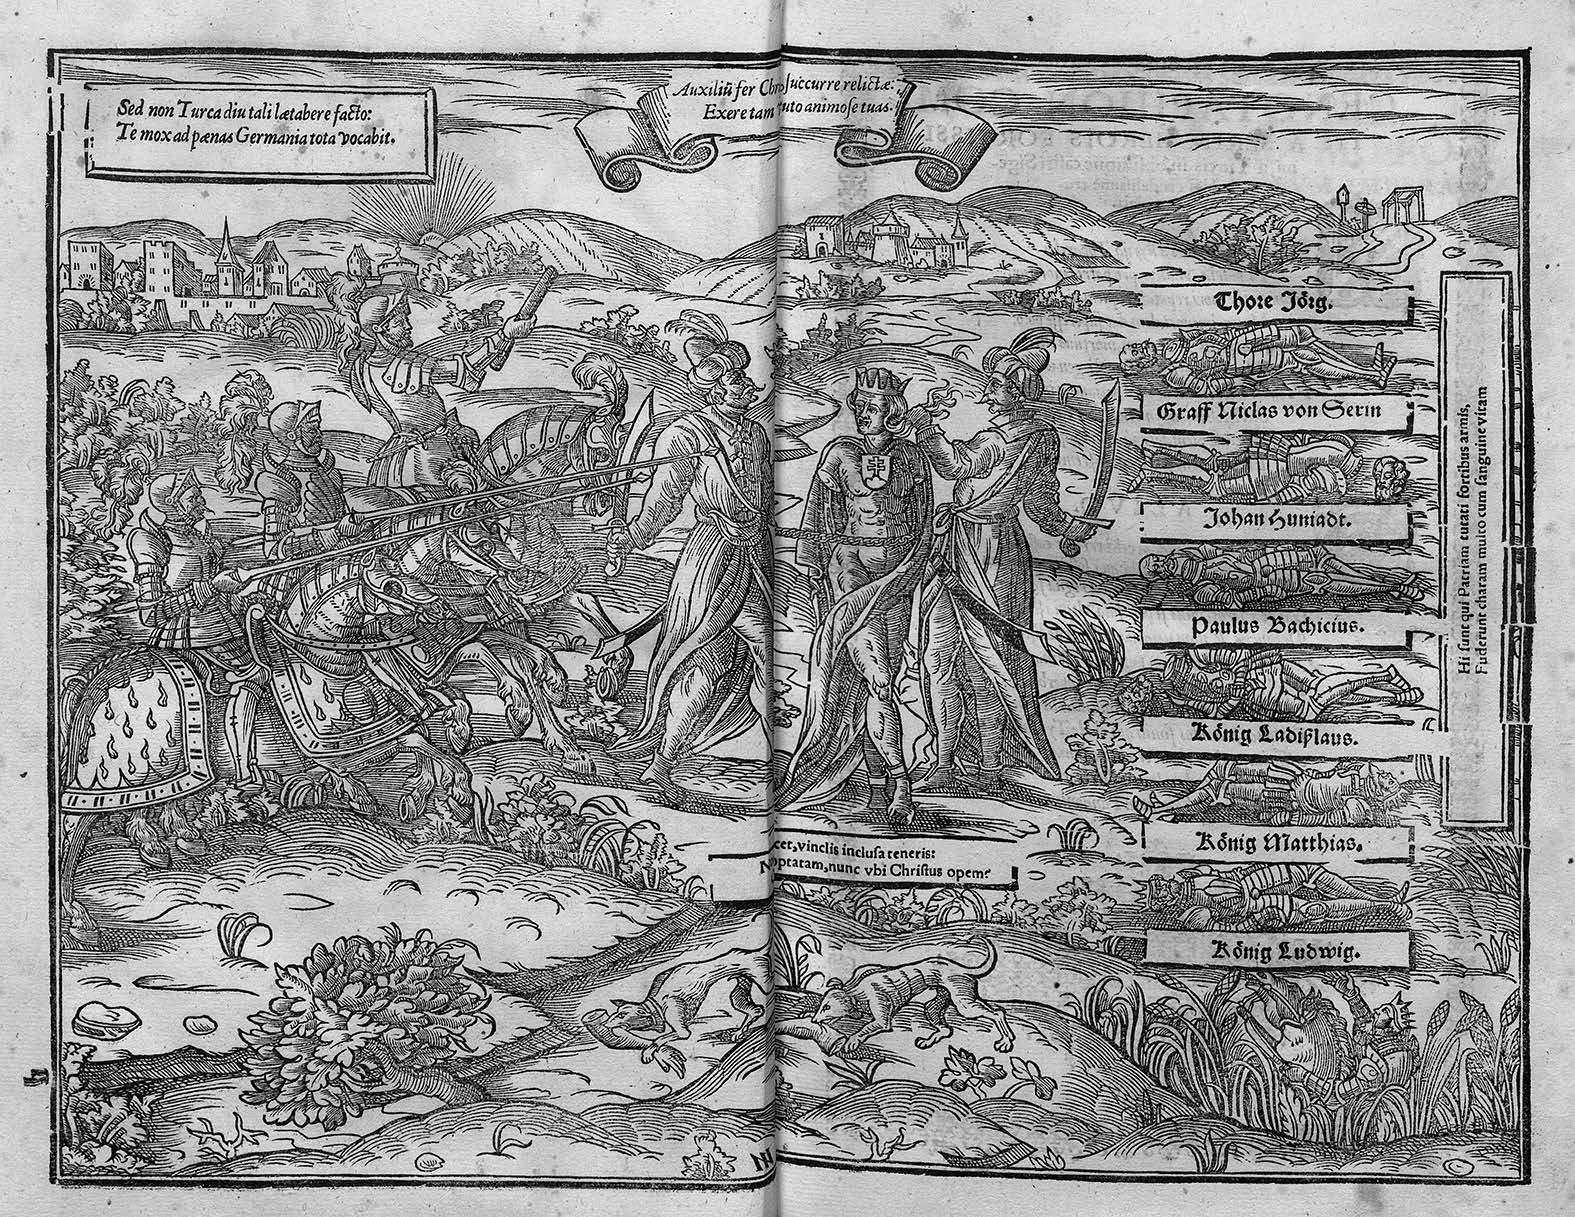 Sed non Turca diu tali lætabere facto:
Te mox ad pænas Germania tota vocabit.
Auxiliū fer succurre relictæ:
Exere tam tuto animose tuas.
Thore Jörg.
Graff Niclas von Serin
Johan Huniadt.
Paulus Bachicius.
König Ladißlaus.
König Matthias.
König Ludwig.
Hi sunt qui Patriam tutati fortibus armis,
Fuderunt charam multo cum sanguine vitam
cet, vinclis inclusa teneris:
optatam, nunc vbi Christus opem?